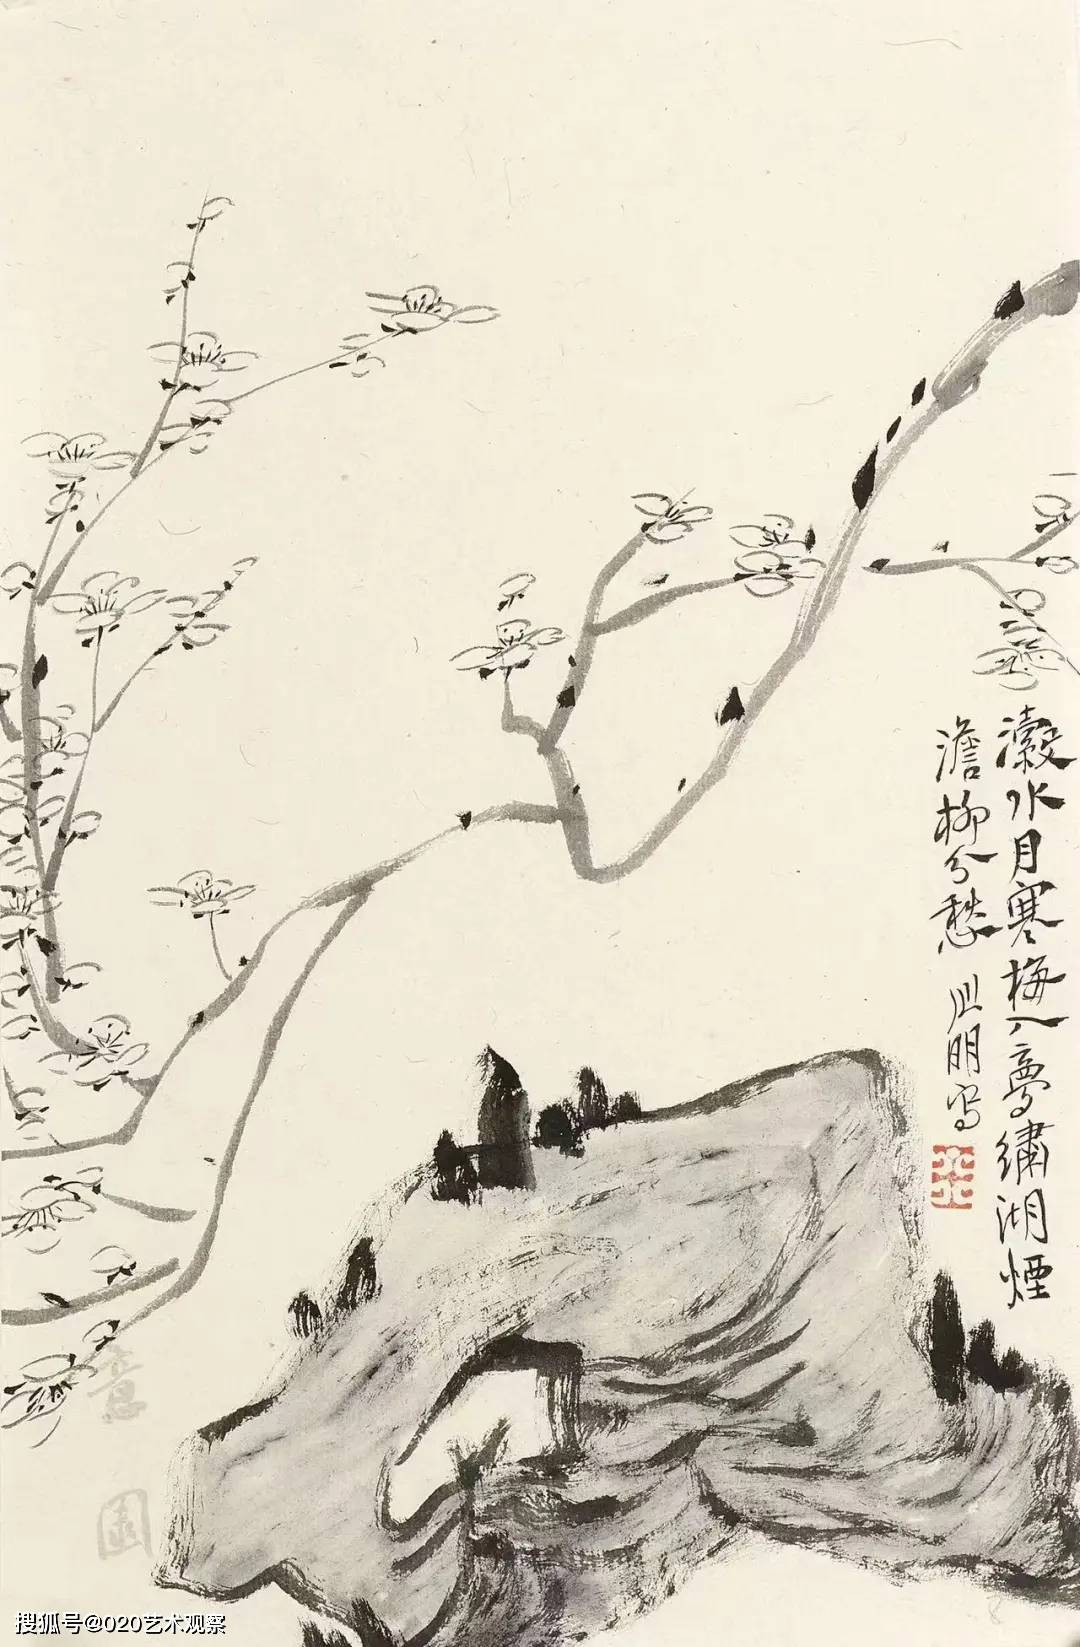 瀫水月寒梅入夢繡湖煙
澹柳分愁
山明写
意園
搜狐号@020艺术观察